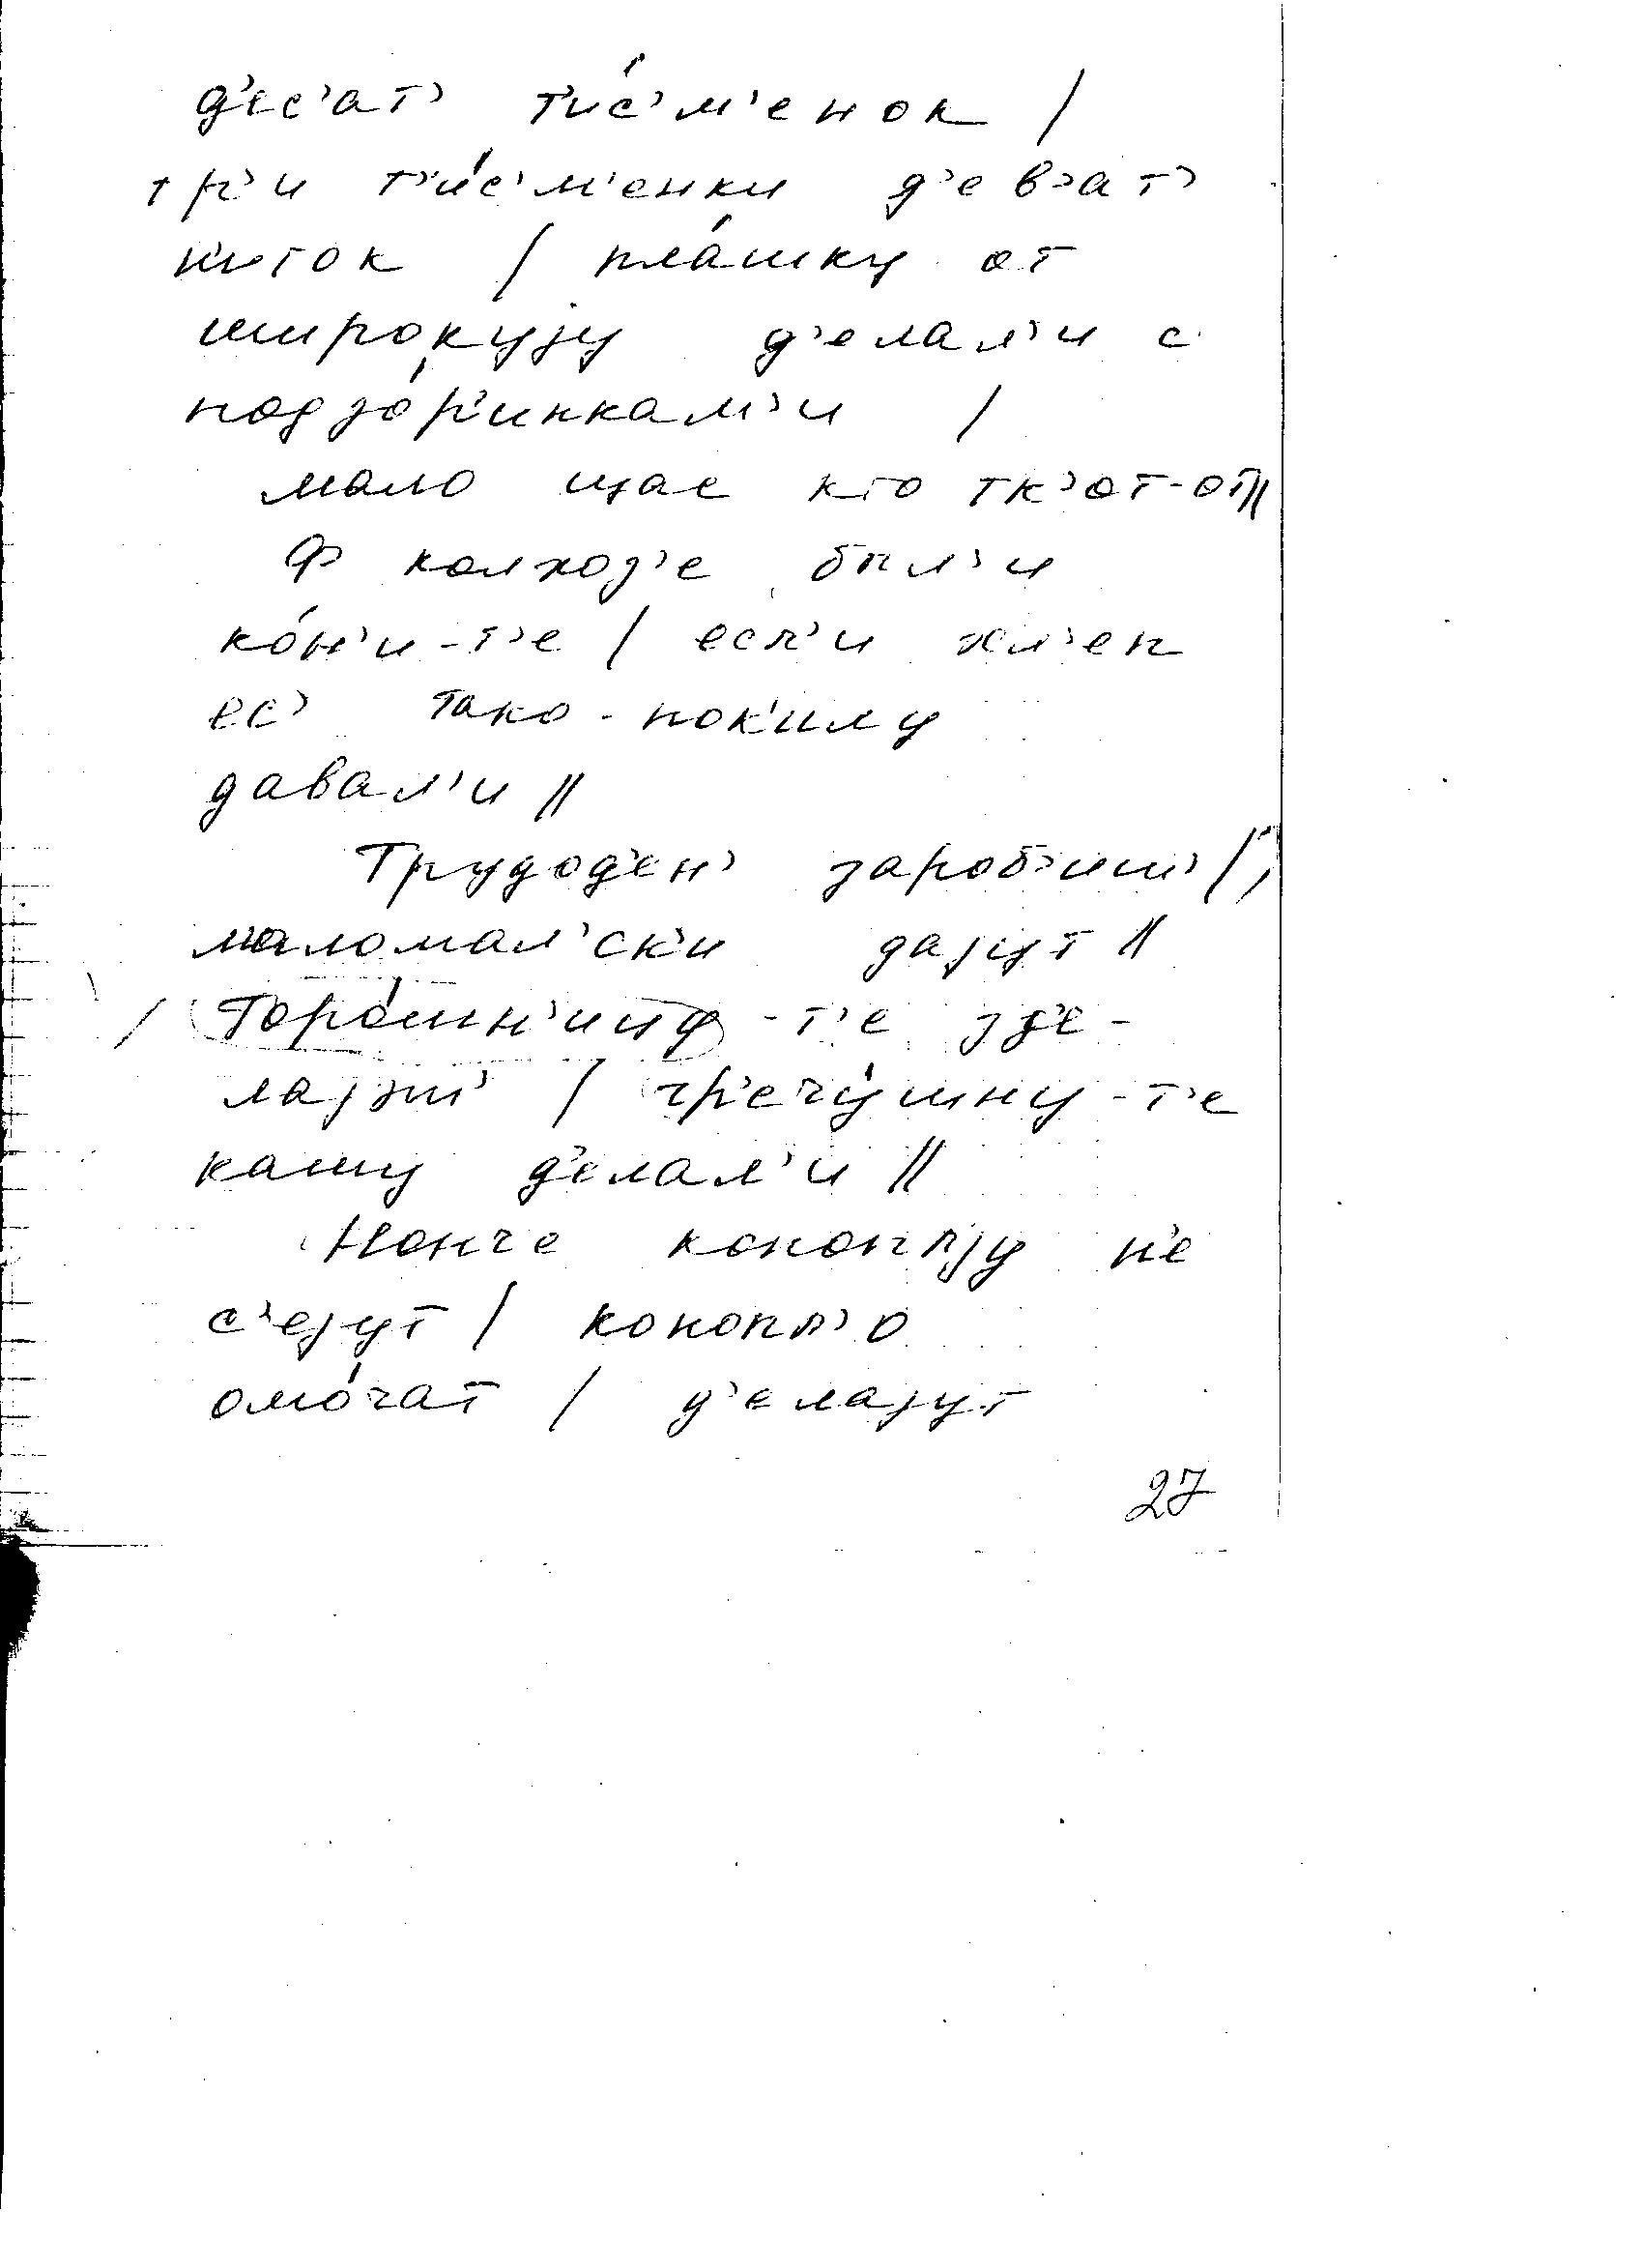 д'ес'ат' т'и́с'м'енок /
тр'и т'и́с'м'енки д'ев'ат'
н'иток / пла́шку от
широкуjу д'елал'и с
подзо́р'инкам'и /
мало щас кто тк'от-от //
Ф колхоз'е был'и
ко́н'и-т'е / есл'и хл'еп
ес' тако-пок'илу
давал'и //
Трудод'ен' зароб'иш' /
маломал'ск'и даjут //
Горо́шн'ицу-т'е зд'е-
лаjэш' / гр'ечу́шну-т'е
кашу д'елал'и //
Нонче коноплjу н'е
с'еjут / конопл'о
омо́чат / д'елаjут
27